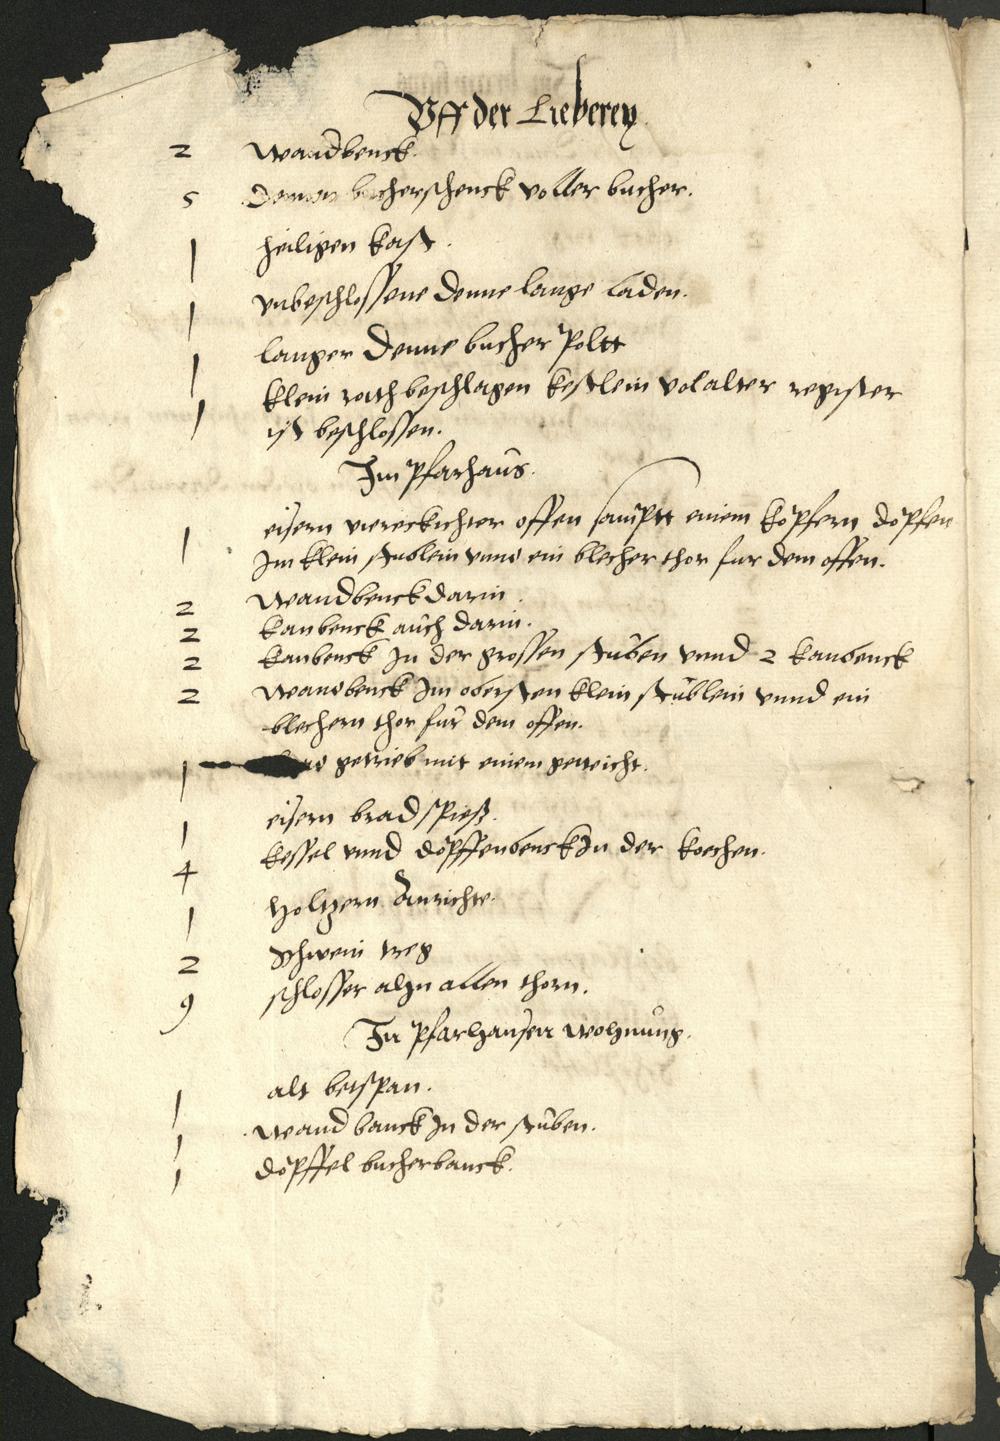 Vff der Lieberey
2 Wandbenck.
5 Dennen bucherschenck voller bucher.
1 heiligen Kast.
1 vnbeschlossene denne lange Laden.
1 langer Denne bucher Poltt
1 klein roth beschlagen kestlein vol alter register
ist beschlossen.
Im Pfarhaus.
1 eisern viereckichter offen sampt einem köpfern döpfen
Im klein stublein vnnd ein blecher thor fur dem offen.
2 Wandbenck darin.
2 kanbenck auch darin.
2 kanbenck In der grossen stuben vnnd 2 kanbenck
2 Wandbenck Im obersten klein stublein vnnd ein
blechern thor fur dem offen.
1 getrieb mit einem gewicht.
1 eisern brad spiess.
4 kessel vnnd döpffenbenck In der kochen.
1 holtzern Anrichte.
2 Schwein treg
9 schlosser alhn allen thorn.
In Pfarhausen wohnung.
1 alt betspan.
1 Wand banck In der stuben.
1 döpffel bucherbanck.